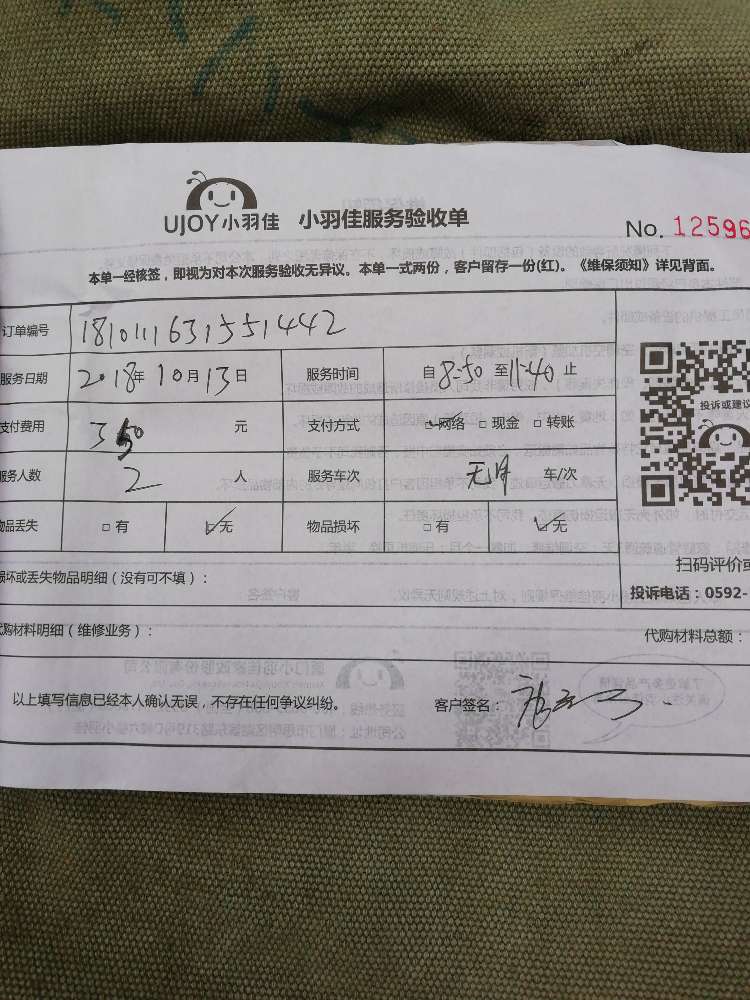 UJOY小羽佳 小羽佳服务验收单
No. 12596
本单一经核签，即视为对本次服务验收无异议。本单一式两份，客户留存一份(红)。《维保须知》详见背面。
订单编号 181011631551442
服务日期 2018年10月13日 服务时间 自8:50至11:40止
投诉或建议
支付费用 350 元 支付方式 ☑网络 □现金 □转账
服务人数 2 人 服务车次 车/次
物品丢失 □有 ☑无 物品损坏 □有 ☑无
扫码评价或
损坏或丢失物品明细（没有可不填）：
投诉电话：0592-
代购材料明细（维修业务）： 代购材料总额：
以上填写信息已经本人确认无误，不存在任何争议纠纷。 客户签名：